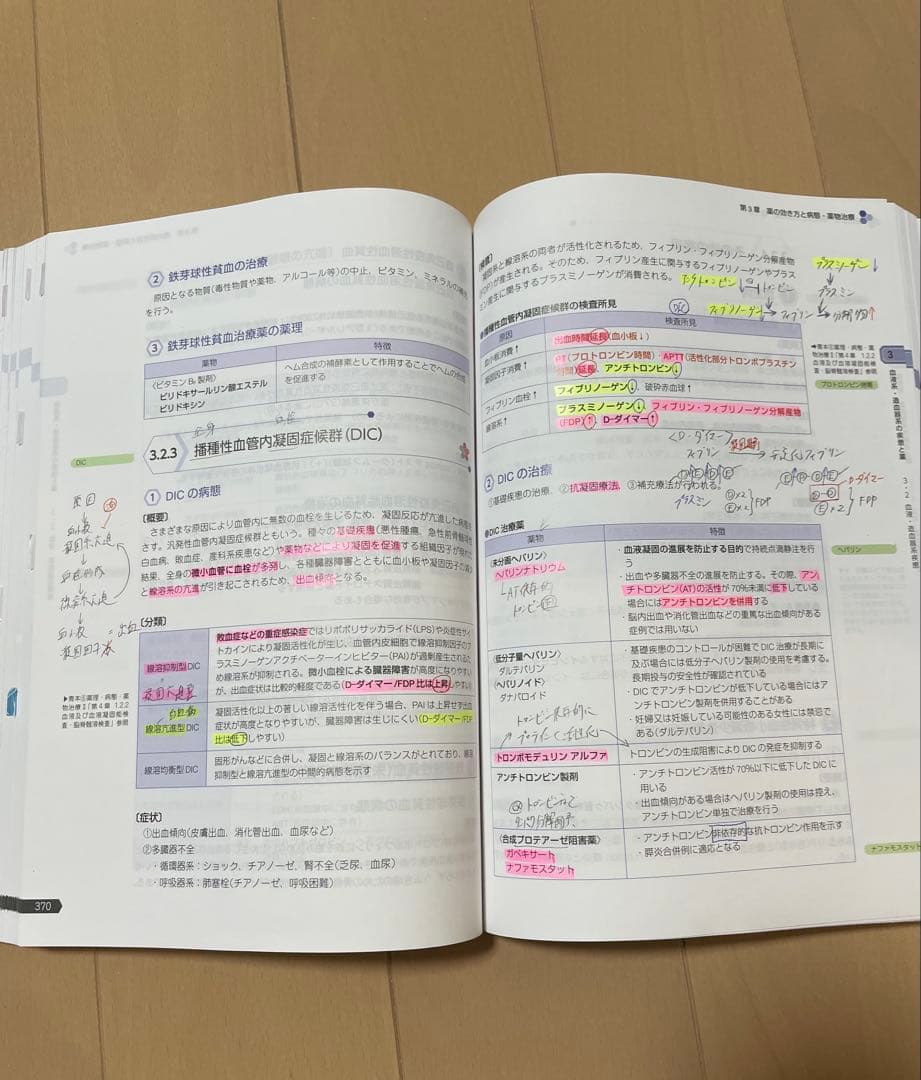 ② 鉄芽球性貧血の治療
原因となる物質(毒性物質や薬物、アルコール等)の中止、ビタミン、ミネラルの補充
を行う。
③ 鉄芽球性貧血治療薬の薬理
薬物
特徴
〈ビタミン B₆ 製剤〉
ピリドキサールリン酸エステル
ピリドキシン
ヘム合成の補酵素として作用することでヘムの合成
を促進する
全身
DIC
3.2.3 播種性血管内凝固症候群(DIC)
① DIC の病態
[概要]
さまざまな原因により血管内に無数の血栓を生じるため、凝固反応が亢進した病態を
さす。汎発性血管内凝固症候群ともいう。種々の基礎疾患(悪性腫瘍、急性前骨髄球性
白血病、敗血症、産科系疾患など)や薬物などにより凝固を促進する組織因子が現れた
結果、全身の微小血管に血栓が多発し、各種臓器障害とともに血小板や凝固因子の減少
と線溶系の亢進が引き起こされるため、出血傾向となる。
原因
▶青本⑤薬理・病態・薬
物治療Ⅱ「第4章 1.2.2
血液及び血液凝固能検
査・脳脊髄液検査」参照
[分類]
線溶抑制型DIC
敗血症などの重症感染症ではリポポリサッカライド(LPS)や炎症性サイ
トカインにより凝固活性化が生じ、血管内皮細胞で線溶抑制因子のプ
ラスミノーゲンアクチベーターインヒビター(PAI)が過剰産生される
ため線溶系が抑制される。微小血栓による臓器障害が高度になりやすい
が、出血症状は比較的軽度である(D-ダイマー/FDP 比は上昇しやすい)
白血病
線溶亢進型DIC
凝固活性化以上の著しい線溶活性化を伴う場合、PAI は上昇せず出血
症状が高度となりやすいが、臓器障害は生じにくい(D-ダイマー/FDP
比は低下しやすい)
線溶均衡型 DIC
固形がんなどに合併し、凝固と線溶系のバランスがとれており、線溶
抑制型と線溶亢進型の中間的病態を示す
[症状]
①出血傾向(皮膚出血、消化管出血、血尿など)
②多臓器不全
・循環器系：ショック、チアノーゼ、腎不全(乏尿、血尿)
・呼吸器系：肺塞栓(チアノーゼ、呼吸困難)
370
第3章 薬の効き方と病態・薬物治療
[検査]
凝固系と線溶系の両者が活性化されるため、フィブリン・フィブリノーゲン分解産物
(FDP)が産生される。そのため、フィブリン産生に関与するフィブリノーゲンやプラス
ミン産生に関与するプラスミノーゲンが消費される。
プラスミノーゲン↓
プラスミン
フィブリノーゲン↓
フィブリン
分解物↑
●播種性血管内凝固症候群の検査所見
DIC
原因
検査所見
血小板消費↑
出血時間延長(血小板↓)
凝固因子消費↑
PT(プロトロンビン時間)・APTT(活性化部分トロンボプラスチン
時間)延長、アンチトロンビン↓
フィブリン血栓↑
フィブリノーゲン↓、破砕赤血球↑
線溶系↑
プラスミノーゲン↓、フィブリン・フィブリノーゲン分解産物
(FDP)↑、D-ダイマー↑
▶青本⑤薬理・病態・薬
物治療Ⅱ「第4章 1.2.2
血液及び血液凝固能検
査・脳脊髄液検査」参照
プロトロンビン時間
3
血液系・造血器系の疾患と薬
3・2 血液・造血器系疾患
〈D-ダイマー〉
フィブリン
安定化フィブリン
② DIC の治療
①基礎疾患の治療、②抗凝固療法、③補充療法が行われる。
プラスミン
D×2
E×2
FDP
D-ダイマー
E×2
FDP
●DIC治療薬
薬物
特徴
〈未分画ヘパリン〉
ヘパリンナトリウム
AT依存的
トロンビン
・血液凝固の進展を防止する目的で持続点滴静注を行
う
・出血や多臓器不全の進展を防止する。その際、アン
チトロンビン(AT)の活性が70%未満に低下している
場合にはアンチトロンビンを併用する
・脳内出血や消化管出血などの重篤な出血傾向がある
症例では用いない
ヘパリン
〈低分子量ヘパリン〉
ダルテパリン
〈ヘパリノイド〉
ダナパロイド
・基礎疾患のコントロールが困難でDIC治療が長期に
及ぶ場合には低分子ヘパリン製剤の使用を考慮する。
長期投与の安全性が確認されている
・DIC でアンチトロンビンが低下している場合にはアン
チトロンビン製剤を併用することがある
・妊婦又は妊娠している可能性のある女性には禁忌で
ある(ダルテパリン)
トロンボモデュリン アルファ
トロンビンの生成阻害により DIC の発症を抑制する
アンチトロンビン製剤
・アンチトロンビン活性が70%以下に低下した DIC に
用いる
・出血傾向がある場合はヘパリン製剤の使用は控え、
アンチトロンビン単独で治療を行う
〈合成プロテアーゼ阻害薬〉
ガベキサート
ナファモスタット
・アンチトロンビン非依存的な抗トロンビン作用を示す
・膵炎合併例に適応となる
ナファモスタット